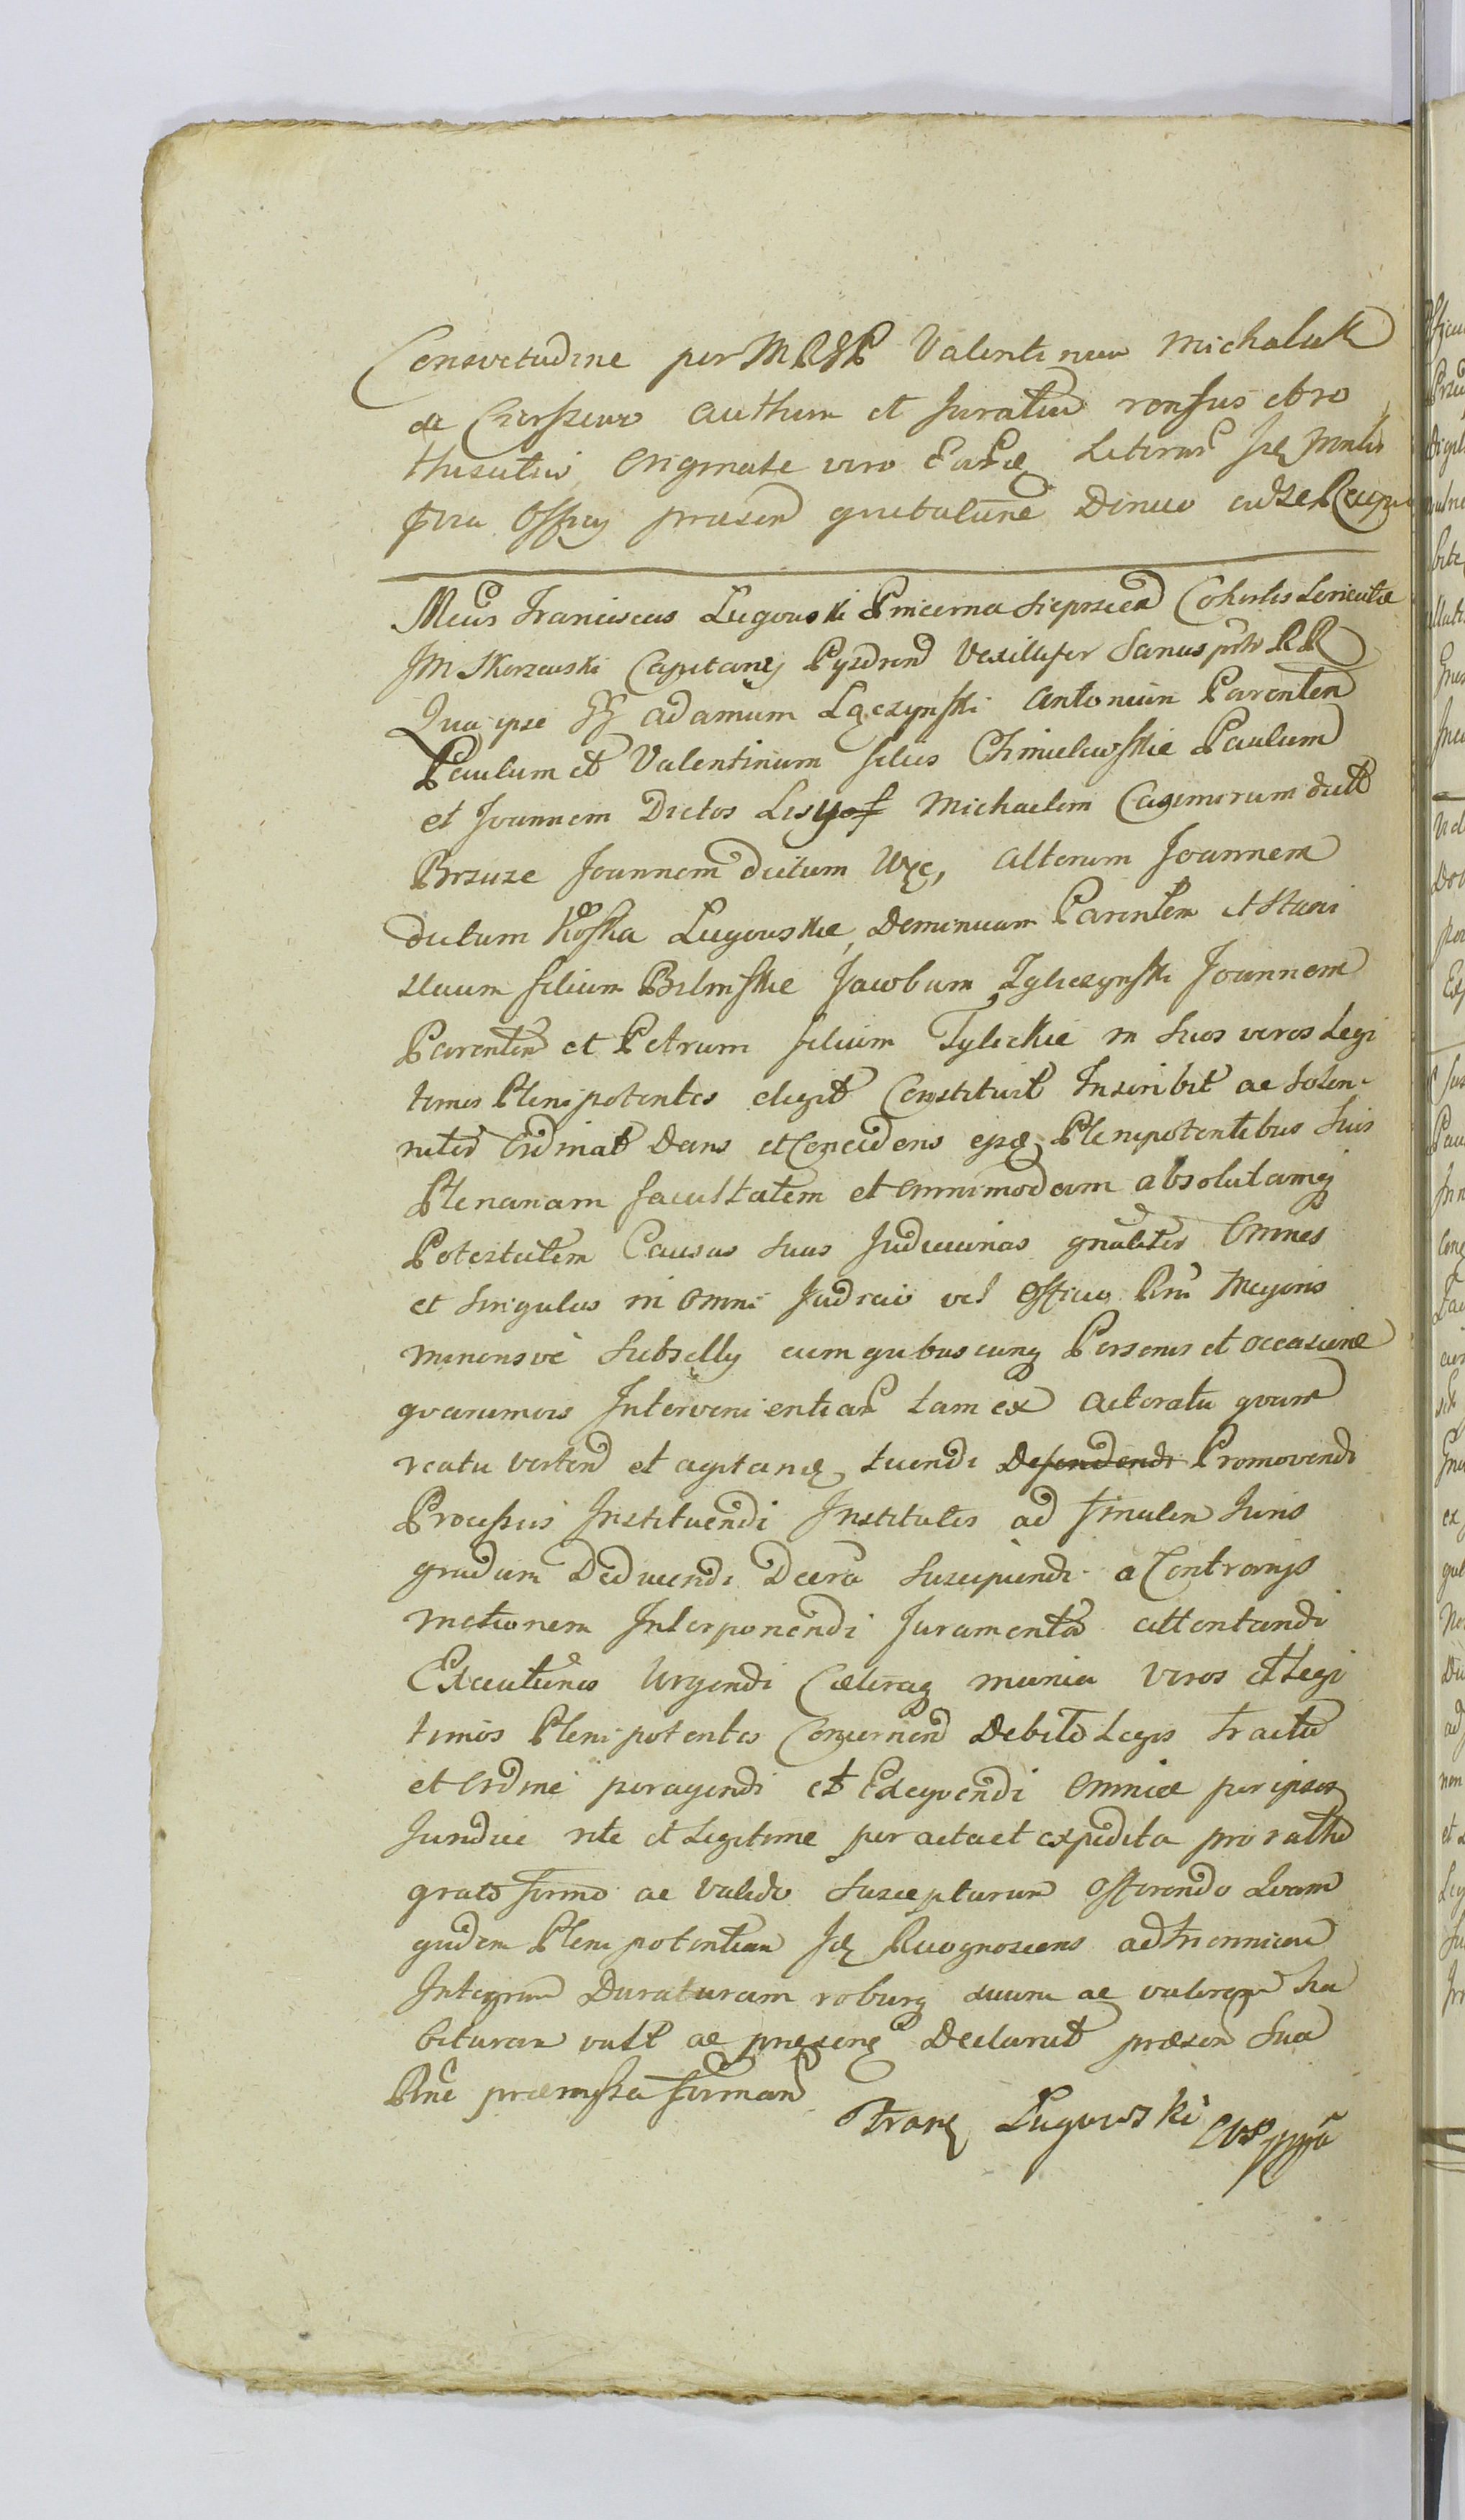 Consvetudine per M R & P Valentinum Michaluk
de authum et Juratum
Originale vero Literar
Officij praesen quietatione Denuo ad se
Mcus Franciscus Ługowski Pincerna Cohortis Loricatae
JM Skorzewski Capitanej Pyzdren Vexillifer Sanus RR
Qua ipse Adamum Łączynski Antonium Parentem
Paulum et Valentinum filios Chmielewskie Paulum
et Joannem Dictos Lisy Michaelem Cazimirum dict
Brzuze Joannem dictum Wąż, alterum Joannem
dictum Koska Ługowskie, Dominicum Parentem et Stani
slaum filium Bilinskie Jacobum Zyliczynski Joannem
Parentem et Petrum filium Tylickie in Suos veros Legi
timos Plenipotentes elegit Constituit Inscribit ac Solen-
niter Ordinat Dans et Concedens ejsq Plenipotentibus Suis
Plenariam facultatem et omnimodam absolutamq
Potestatem Causas Suas Judiciarias gnaliter Omnes
et Singulas in Omni Judicio vel Officio Rni Mayoris
minorisve Subsellij cum quibuscunq Personis et occasione
quarumvis Intervenientiar tam ex actoratu quam
reatu verten et agitan tuendi Defendendi Promovendi
Processus Instituendi Institutos ad finalem Juris
gradum Deducendi Decreta Suscipiendi a Contrarijs
motionem Interponendi Juramenta attentandi
Executiones Urgendi Caeteraq munia veros et Legi
timos Plenipotentes Concernen Debito Legis tractu
et Ordine peragendi et Exequendi Omnia per ipsos
Juridice rite et Legitime peracta et expedita pro ratho
grato firmo ac valido Suscepturum Offerendo Quam
quidem Plenipotentiam Recognoscens ad triennium
Integrum Duraturam roburq suum ac valorem ha
bituram vult ac Declarat praesen Sua
Rne praemissa firman
Fran Ługowski